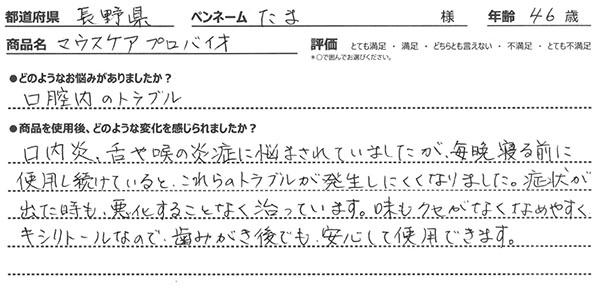 都道府県 長野県 ペンネーム たま 様 年齢 46 歳
商品名 マウスケア プロバイオ 評価 とても満足 ・ 満足 ・ どちらとも言えない ・ 不満足 ・ とても不満足
*○で囲んでお選びください。
●どのようなお悩みがありましたか？
口腔内のトラブル
●商品を使用後、どのような変化を感じられましたか？
口内炎、舌や喉の炎症に悩まされていましたが、毎晩寝る前に
使用し続けていると、これらのトラブルが発生しにくくなりました。症状が
出た時も、悪化することなく治っています。味もクセがなくなめやすく
キシリトールなので、歯みがき後でも、安心して使用できます。